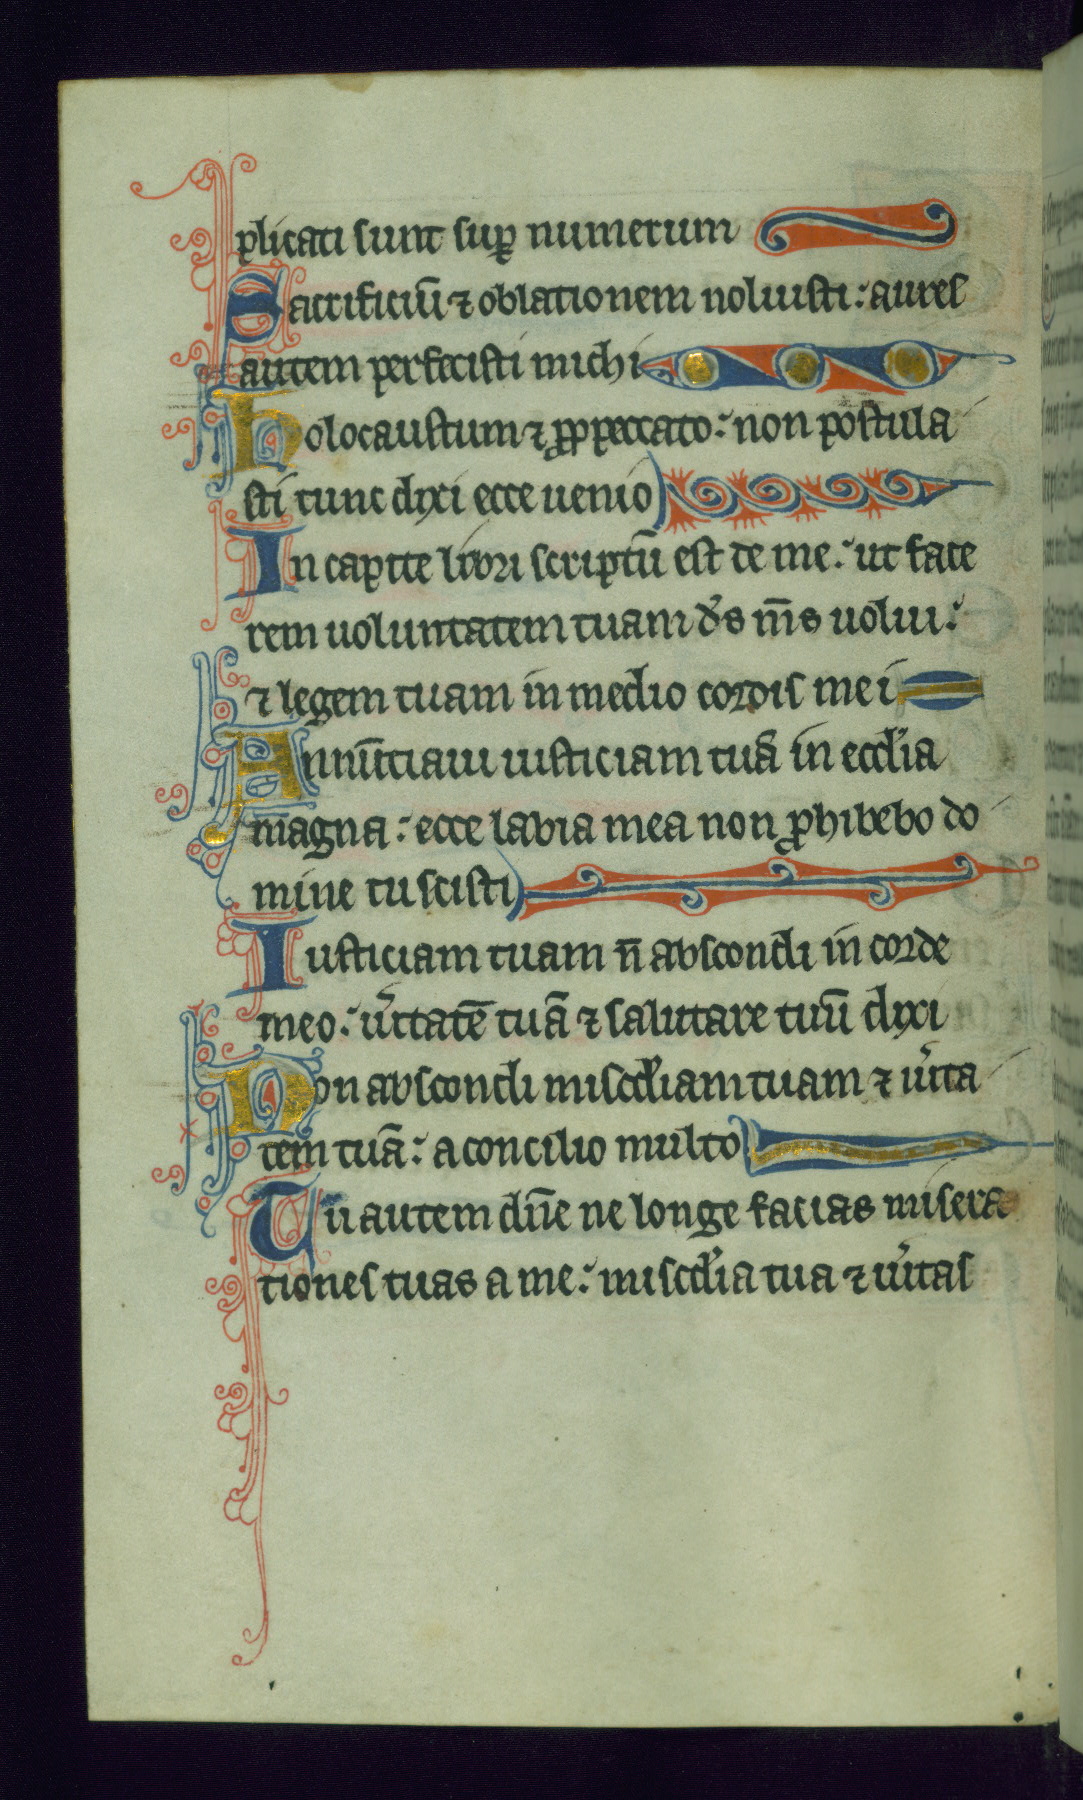 plicati sunt suꝑ numerum
Sacrificiū ⁊ oblationem noluisti: aures
autem perfecisti michi
holocaustum ⁊ ꝓ peccato: non postula
sti tunc dixi ecce uenio
In capite libri scriptū est de me: ut face
rem uoluntatem tuam d̄s m̄s uolui:
⁊ legem tuam in medio cordis mei
Annūciaui iusticiam tuā in eccl̄ia
magna: ecce labia mea non ꝓhibebo do
mine tu scisti
Iusticiam tuam n̄ abscondi in corde
meo: ūitatē tuā ⁊ salutare tuū dixi
Non abscondi miscd̄iam tuam ⁊ ūita
tem tuā: a concilio multo
Tu autem dn̄e ne longe facias misera
tiones tuas a me: miscd̄ia tua ⁊ ūitas